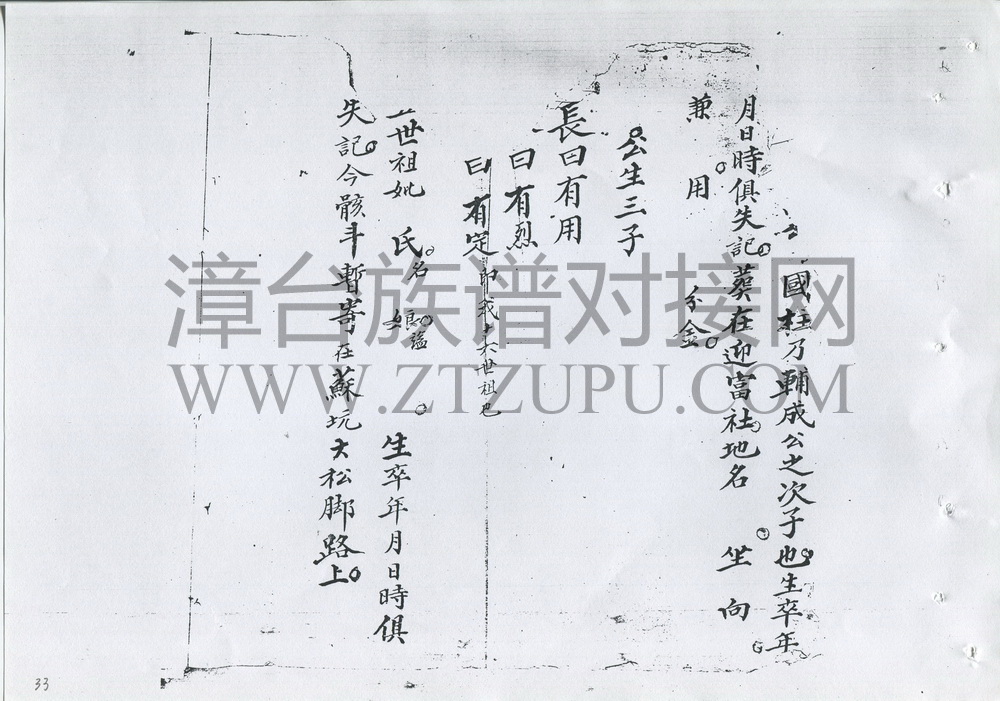 國柱乃輔成公之次子也生卒年
月日時俱失記葬在迎富社地名 坐向
兼 用 分金
公生三子
長曰有用
曰有烈
曰有定即我十六世祖也
世祖妣 氏名 娘諡 生卒年月日時俱
失記今骸斗暫寄在蘇坑大松脚路上
漳台族谱对接网
WWW.ZTZUPU.COM
33